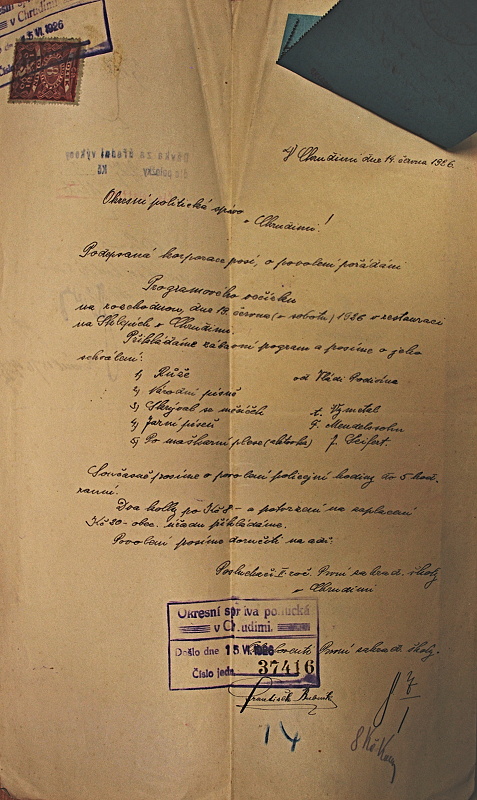 v Chrudimi
15 VI 1926
V Chrudimi dne 14. června 1926.
Okresní politická správo
v Chrudimi!
Podepsaná korporace prosí, o povolení pořádání
Programového večírku
na rozchodnou, dne 19 června (v sobotu) 1926 v restauraci
na Sklepích v Chrudimi.
Přikládáme zábavní program a prosíme o jeho
schválení:
1) Růže od Vládi
2) Národní písně
3) Skrýval se měsíček A. Vymetal
4) Jarní píseň F. Mendelsohn
5) Po maškarním plese J. Seifert
Současně prosíme o povolení policejní hodiny do 5 hod.
ranní.
Dva kolky po Kč 8- a potvrzení na zaplacení
Kč 30- obec. úřadu přikládáme.
Povolení prosíme doručiti na adr.
Posluchači II. roč. První zahrad. školy
v Chrudimi
Okresní správa politická
v Chrudimi.
Došlo dne 15 VI. 1926
Číslo jedn. 37416
První zahrad. školy
František
14
8 Kč